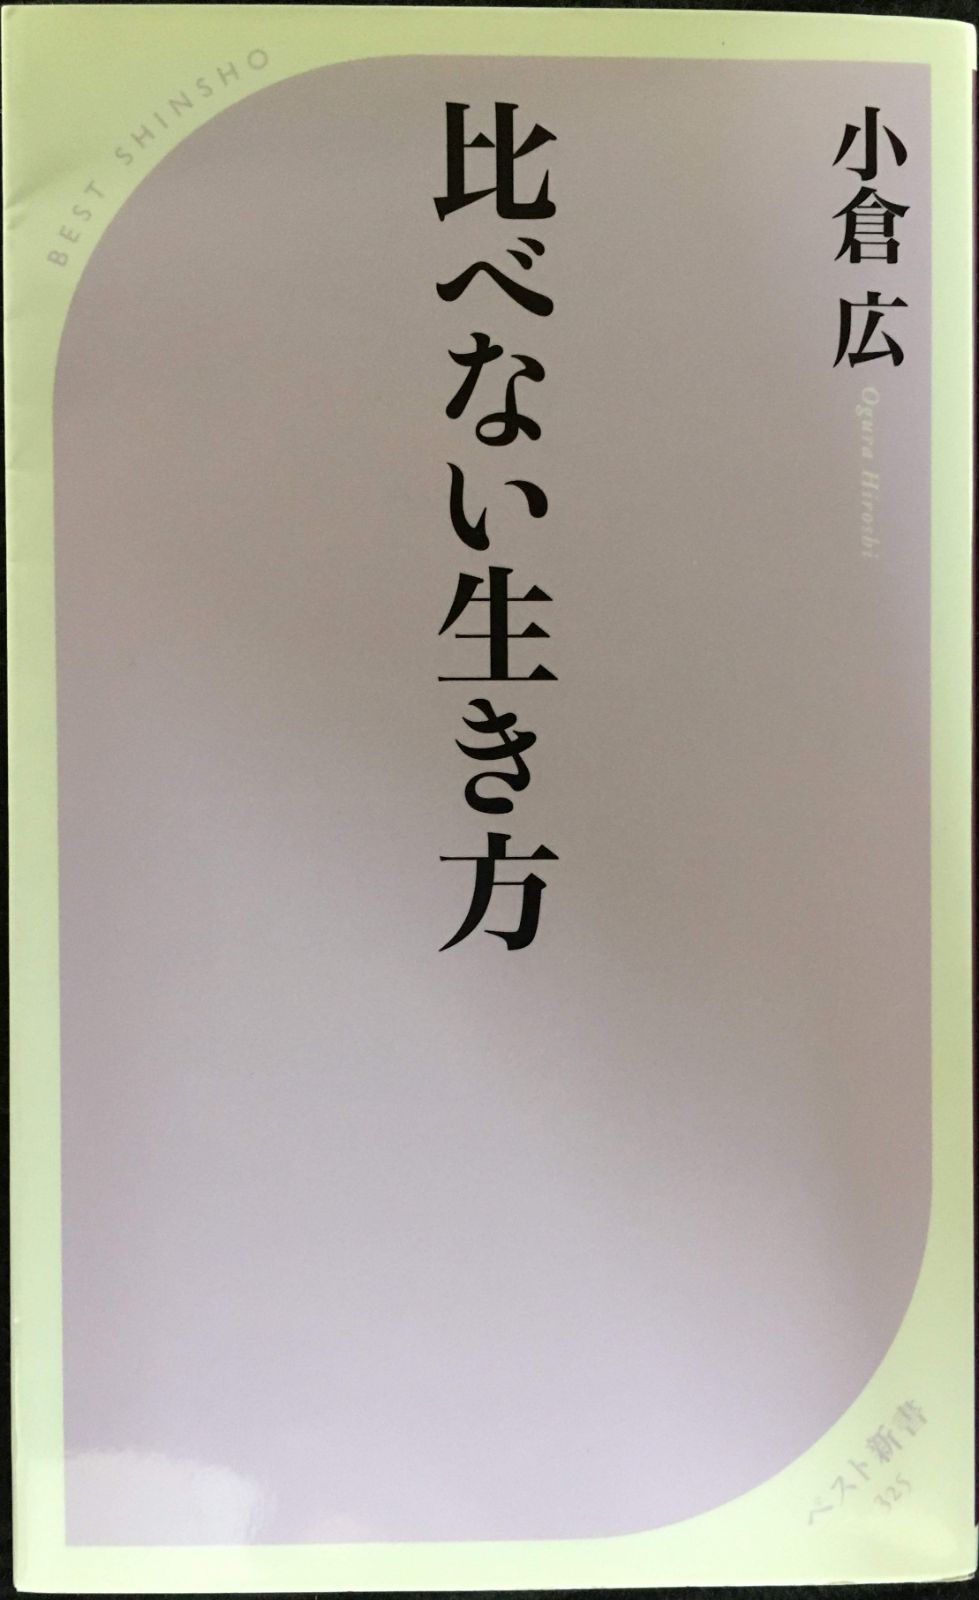 BEST SHINSHO
小倉 広
Ogura Hiroshi
比べない生き方
ベスト新書
325